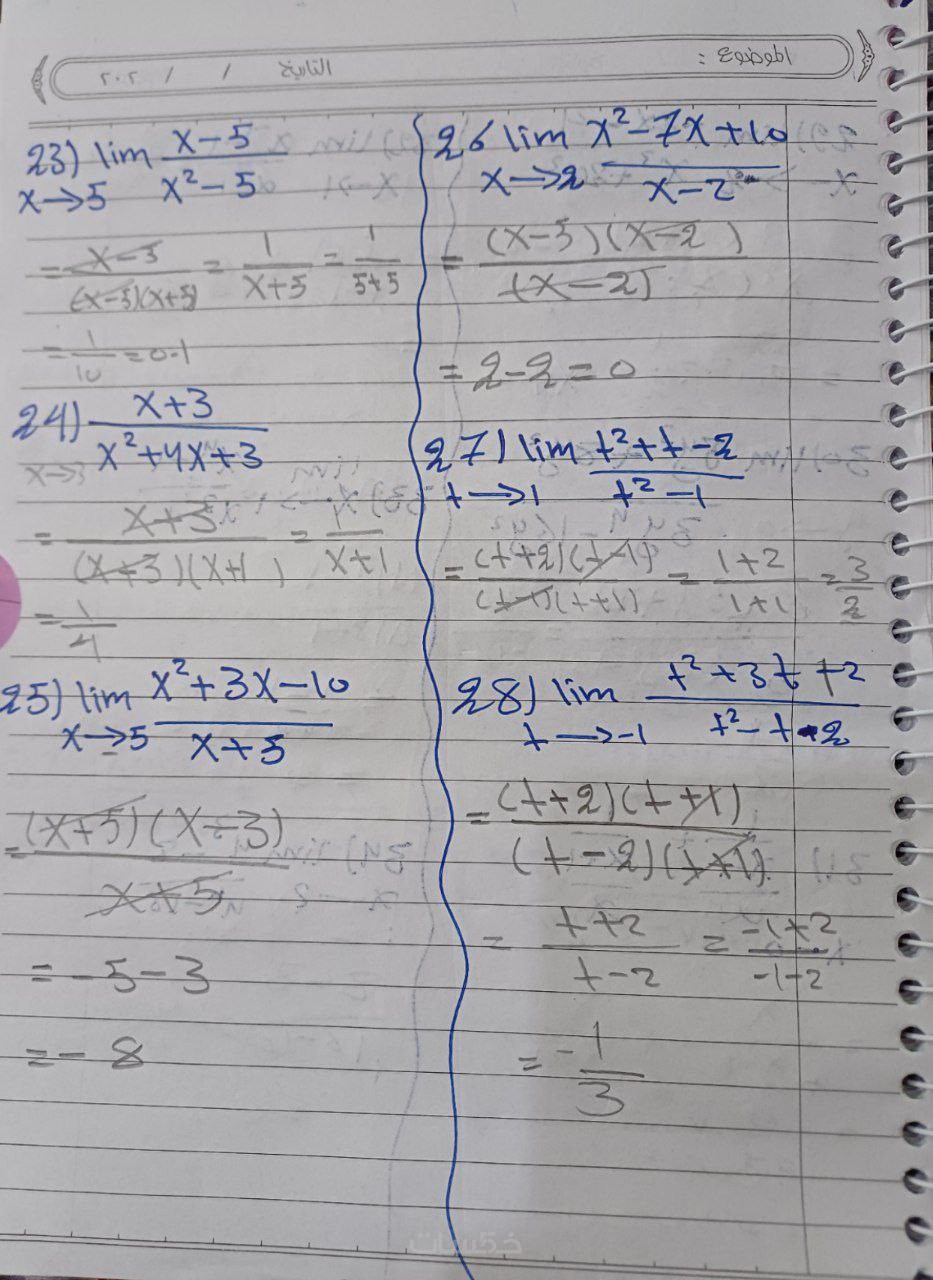 الموضوع :
التاريخ / / ٢٠٢
23) lim x-5 / x²-5
x→5
= x-5 / (x-5)(x+5) = 1 / x+5 = 1 / 5+5
= 1/10 = 0.1
24) x+3 / x²+4x+3
x→3
= x+3 / (x+3)(x+1) = 1 / x+1
= 1/4
25) lim x²+3x-10 / x+5
x→5
= (x+5)(x-3) / x+5
= -5-3
= -8
26 lim x²-7x+10 / x-2
x→2
= (x-5)(x-2) / (x-2)
= 2-2=0
27) lim t²+t-2 / t²-1
t→1
= (t+2)(t-1) / (t-1)(t+1) = 1+2 / 1+1 = 3/2
28) lim t²+3t+2 / t²-t-2
t→-1
= (t+2)(t+1) / (t-2)(t+1)
= t+2 / t-2 = -1+2 / -1-2
= -1/3
خمسات